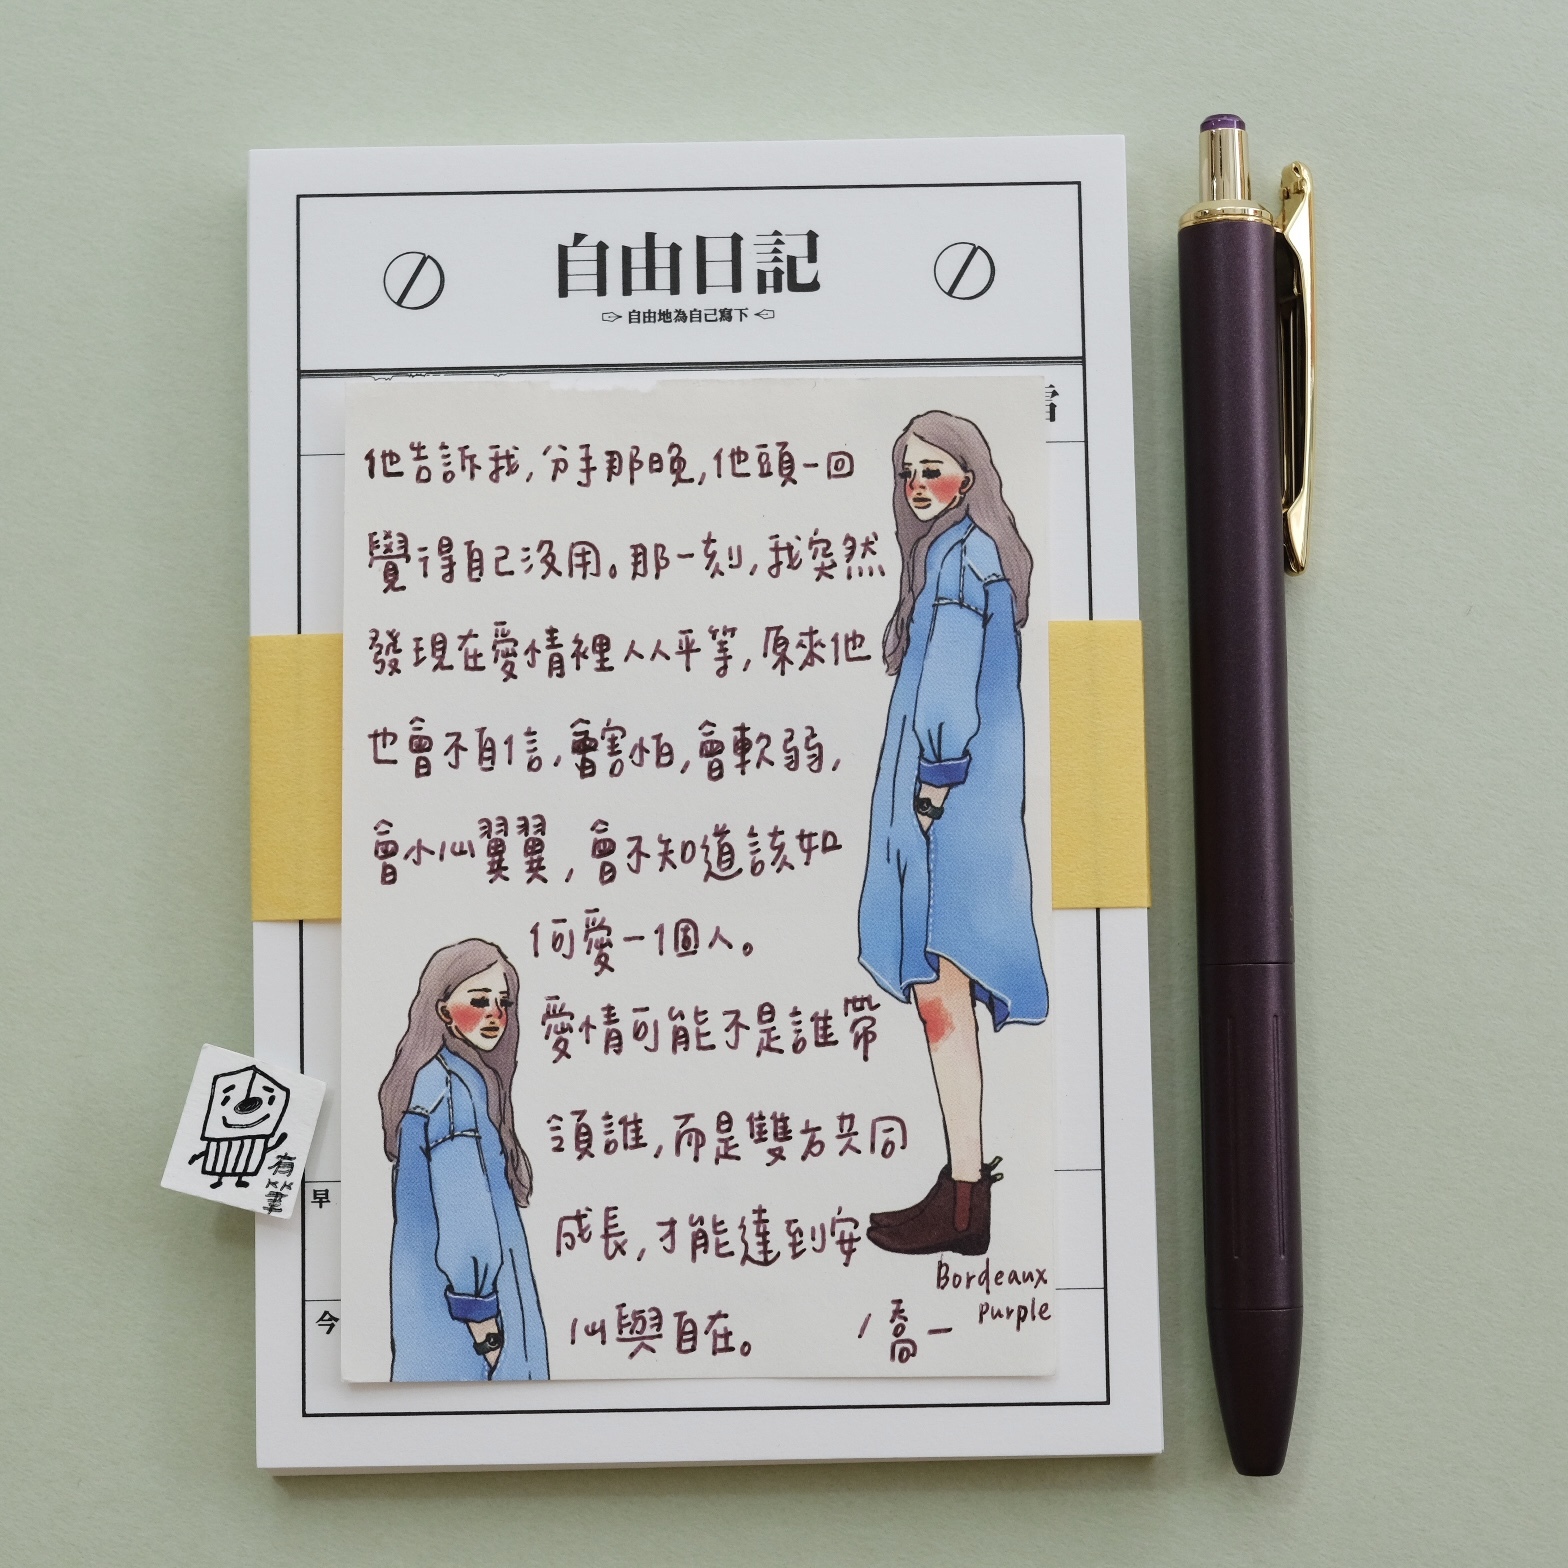 自由日記
自由地為自己寫下
他告訴我,分手那晚,他頭一回
覺得自己沒用。那一刻,我突然
發現在愛情裡人人平等,原來他
也會不自信,會害怕,會軟弱,
會小心翼翼,會不知道該如
何愛一個人。
愛情可能不是誰帶
領誰,而是雙方共同
成長,才能達到安
心與自在。
/喬一
Bordeaux
Purple
早
今